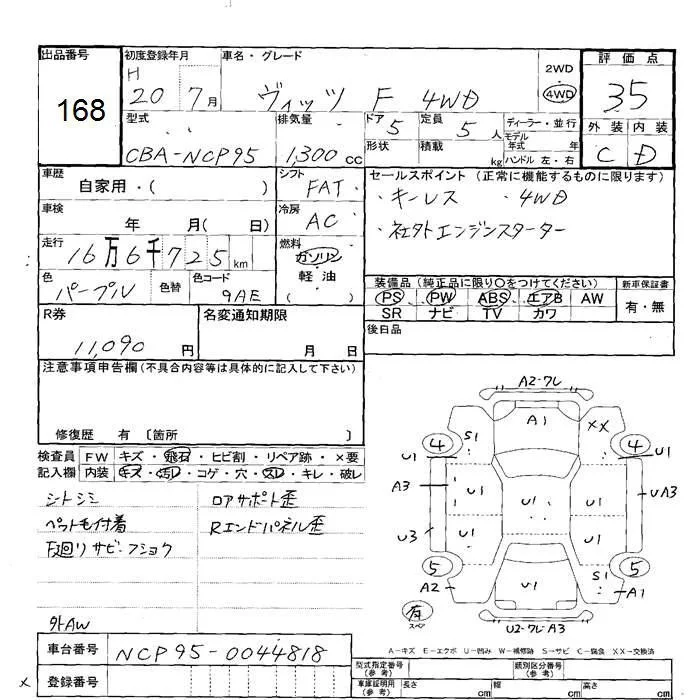 出品番号 初度登録年月 車名・グレード 2WD 評価点
168 H 20 7月 ヴィッツ F 4WD 4WD 35
型式 排気量 ドア 5 定員 5人 ディーラー・並行 外装 内装
CBA-NCP95 1,300cc 形状 積載 kg モデル年式 年式 C D
ハンドル 左・右
車歴 シフト セールスポイント (正常に機能するものに限ります)
自家用・( ) FAT ・キーレス ・4WD
車検 冷房 ・社外エンジンスターター
年 月( 日) AC
走行 燃料
16万6千725km ガソリン
色 色替 色コード 軽油 装備品(純正品に限り○をつけてください) 新車保証書
パープル 9AE ( ) PS PW ABS エアB AW 有・無
R券 名変通知期限 SR ナビ TV カワ
11,090円 月 日 後日品
注意事項申告欄(不具合内容等は具体的に記入して下さい)
修復歴 有 〔箇所 〕
検査員 FW キズ・飛石・ヒビ割・リペア跡・×要
記入欄 内装 キズ・汚レ・コゲ・穴・スレ・キレ・破レ
シトシミ ロアサポト歪
ペット毛付着 Rエンドパネル歪
下廻リサビ・フショク
外AW
A2-フレ
A1 XX
4 S1 4
U1 U1
A3 U1 U1 U1 UA3
U3 U1 U1
5 S1 5
A2 U1 A1
有 スペア U2-フレ・A3
A-キズ E-エクボ U-凹み W-補修跡 S-サビ C-腐食 XX-交換済
車台番号 NCP95-0044818
型式指定番号(参考) 類別区分番号(参考)
× 登録番号 車庫証明用(参考) 長さ cm 幅 cm 高さ cm